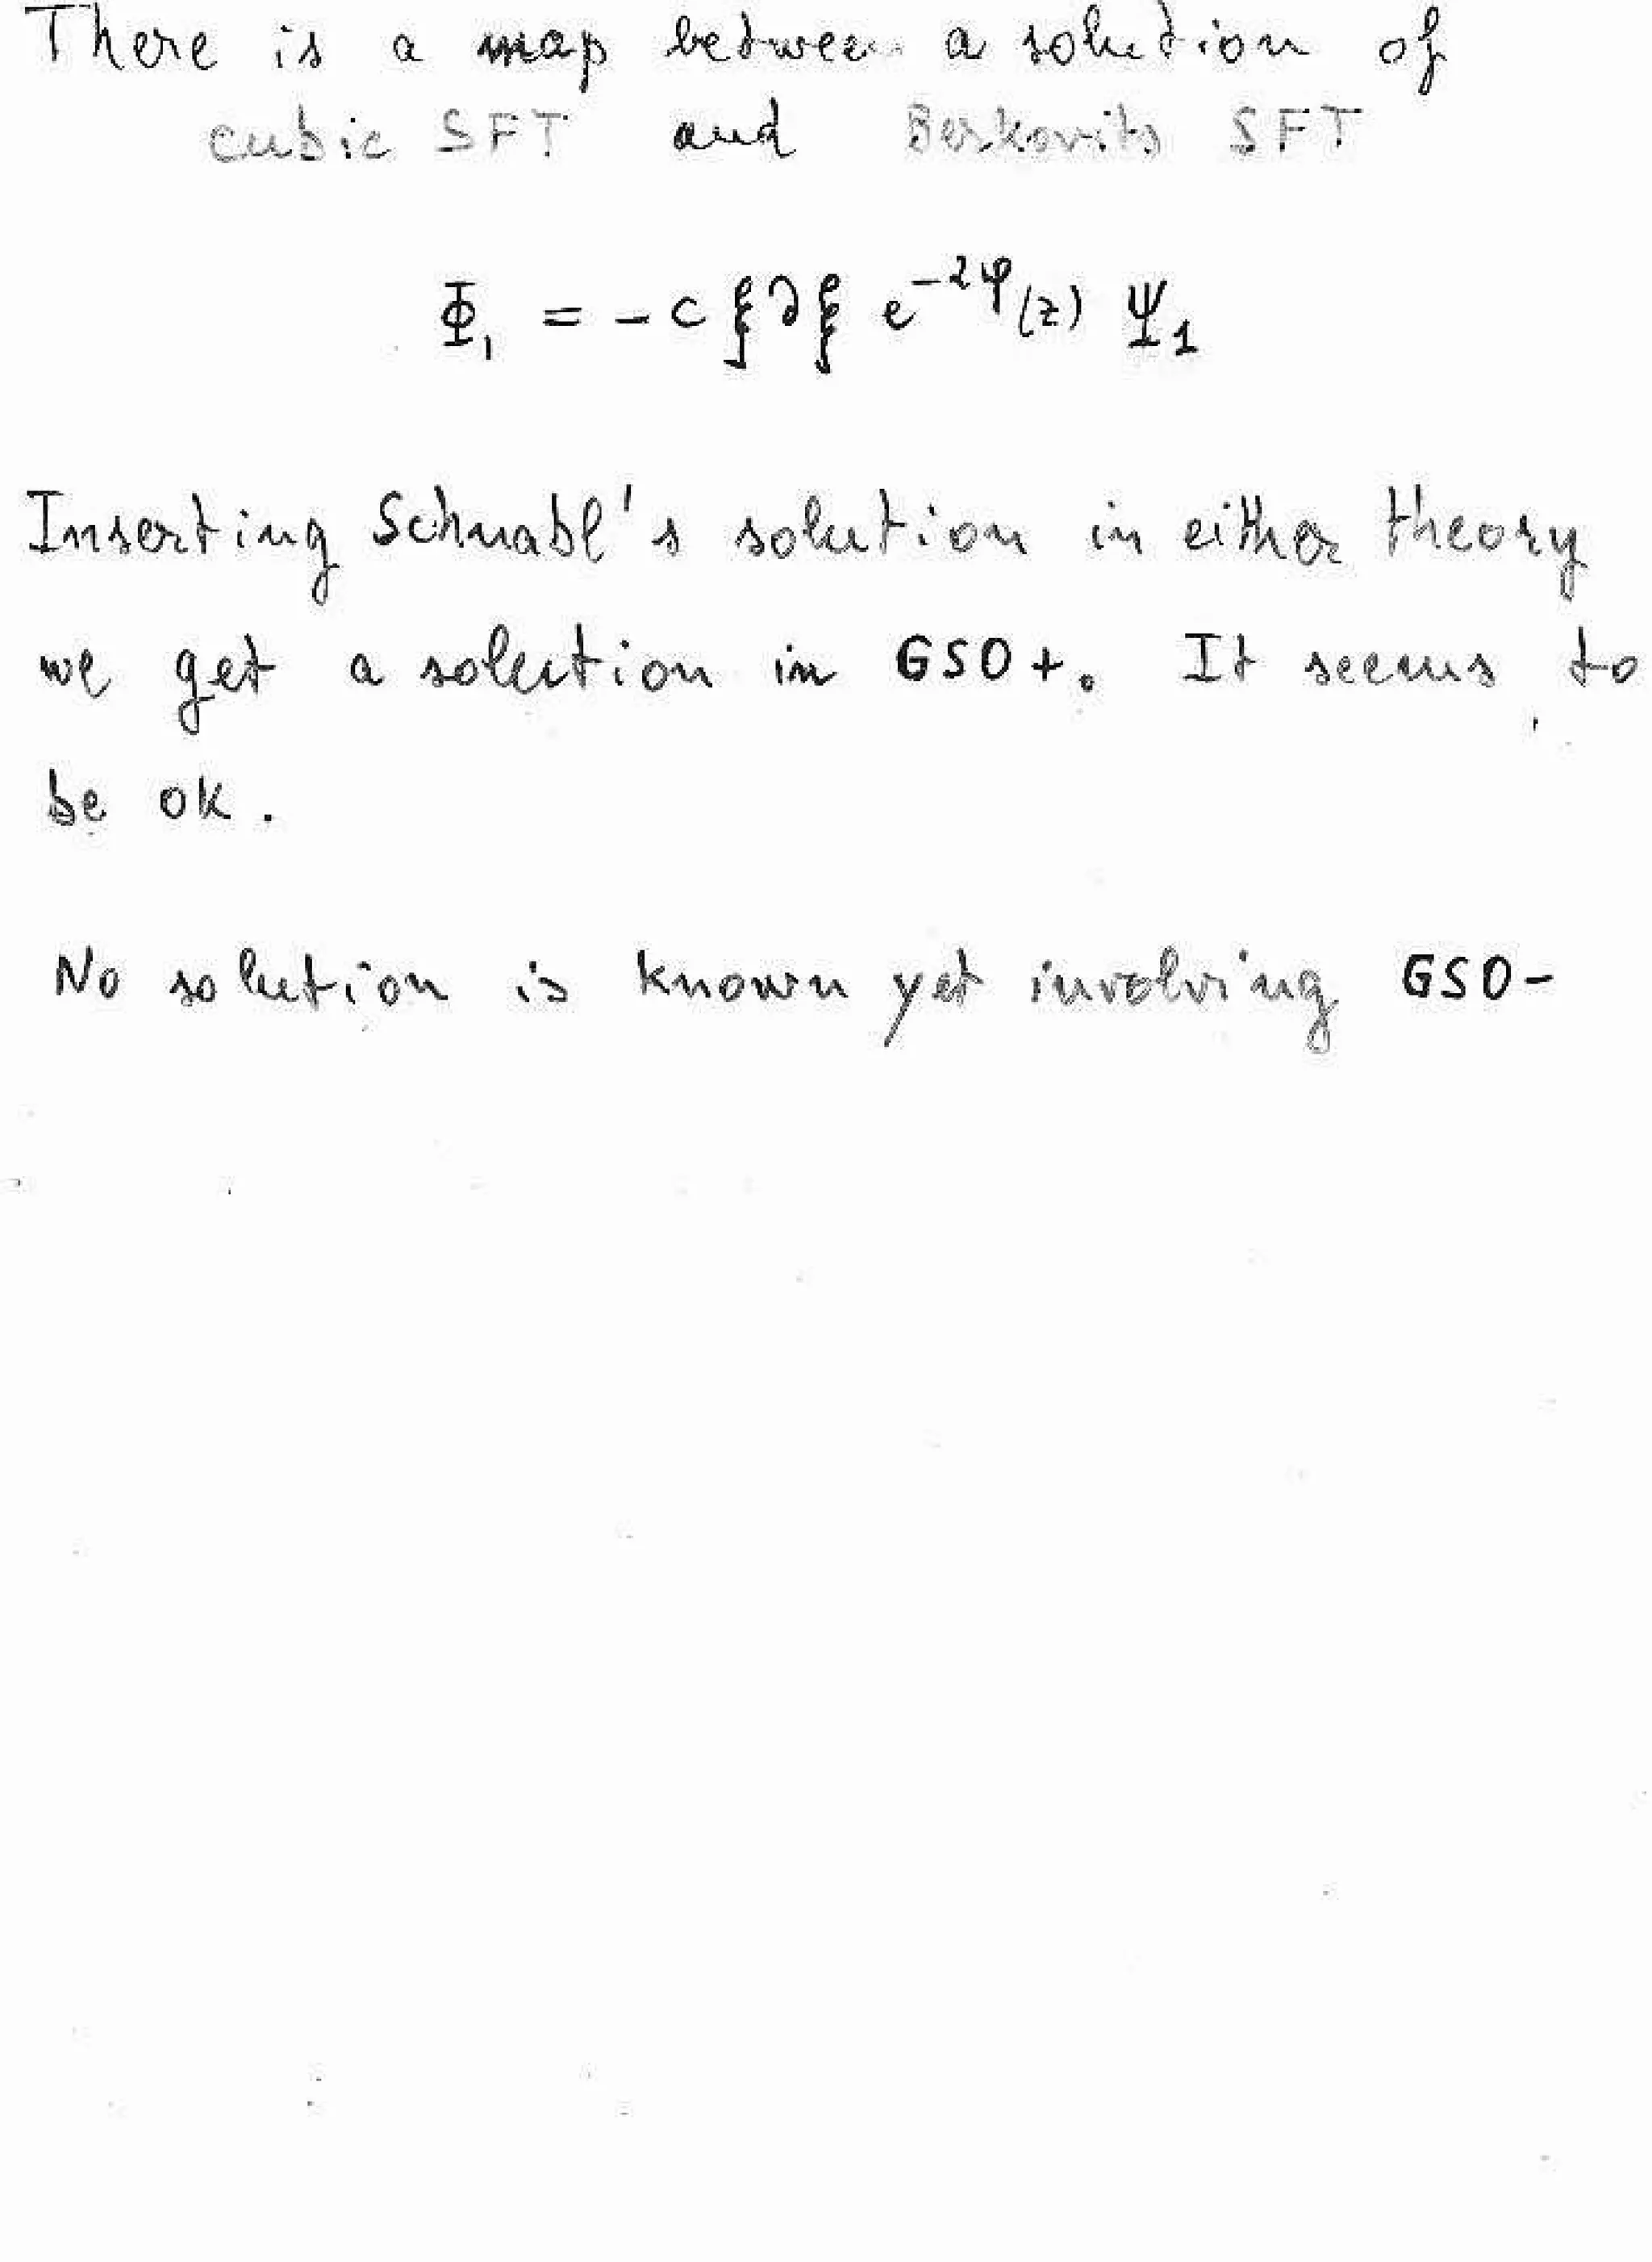 There is a map between a solution of
cubic SFT and Berkovits SFT
Φ₁ = - c ξ∂ξ e^{-2φ}(z) Ψ₁
Inserting Schnabl's solution in either theory
we get a solution in GSO+. It seems to
be ok.
No solution is known yet involving GSO-